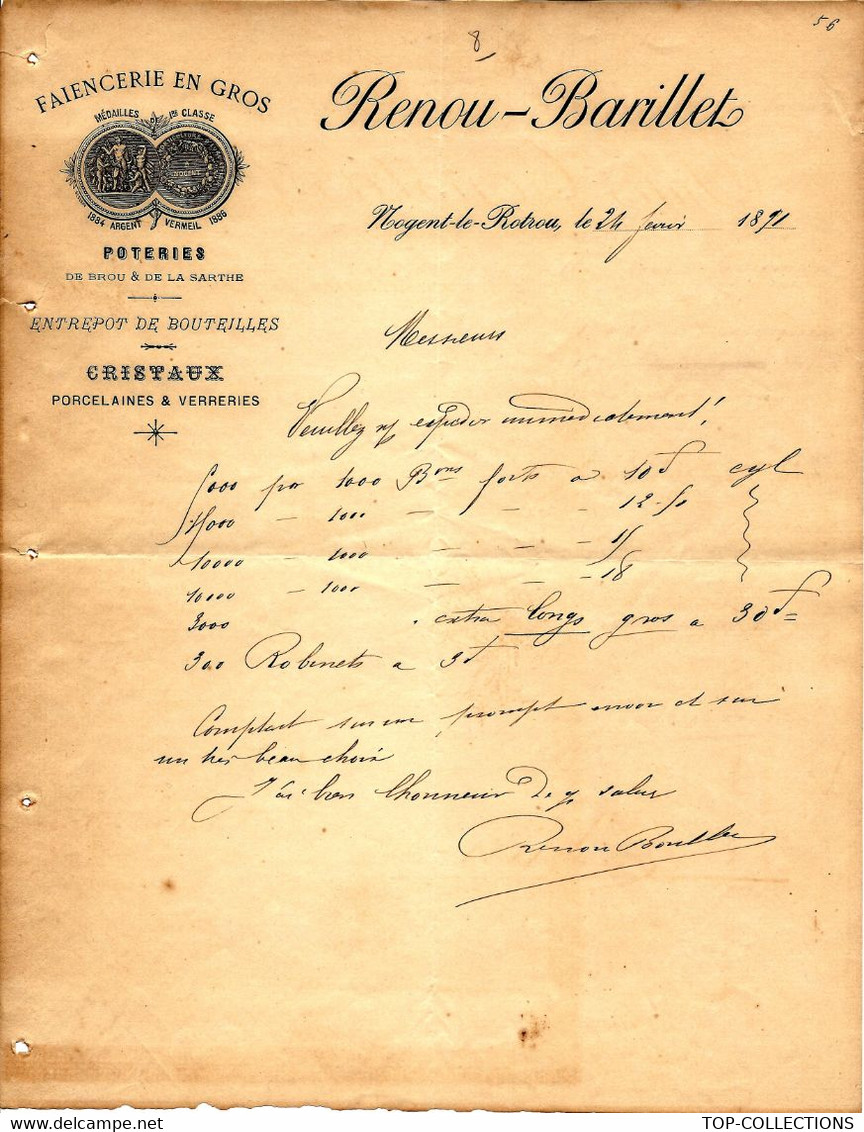 56
8
FAIENCERIE EN GROS
MÉDAILLES 1RE CLASSE
NOGENT
1884 ARGENT VERMEIL 1886
POTERIES
DE BROU & DE LA SARTHE
ENTREPOT DE BOUTEILLES
CRISTAUX
PORCELAINES & VERRERIES
Renou-Barillet
Nogent-le-Rotrou, le 24 février 1891
Messieurs
Veuillez expédier immédiatement
5000 par 1000 Bons forts a 10 cyl
1000 12
10000 - 1000 - - -
10000 - 1000 - - - 18
3000 extra longs gros a 30
300 Robinets a 3
Comptant sur un prompt envoi et sur
un tres beau choix
J'ai bien l'honneur de saluer
Renou Barillet
TOP-COLLECTIONS